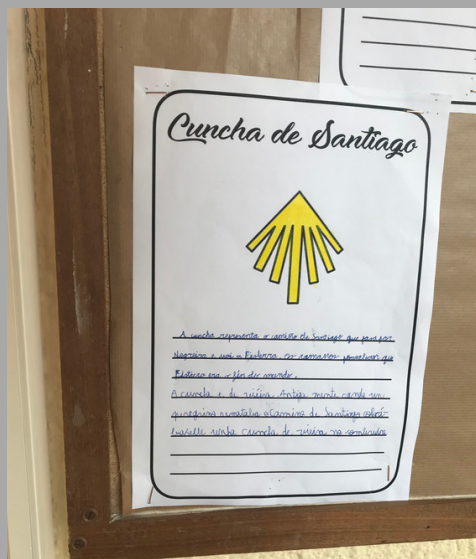 Cuncha de Santiago
A cuncha representa o camiño de Santiago que pasa por
Negreira e vai a Fisterra. Os romanos pensaban que
Fisterra era o fin do mundo.
A cuncha é de vieira. Antiga mente cando un
peregrino remataba o Camino de Santiago
unha cuncha de vieira no sombreiro